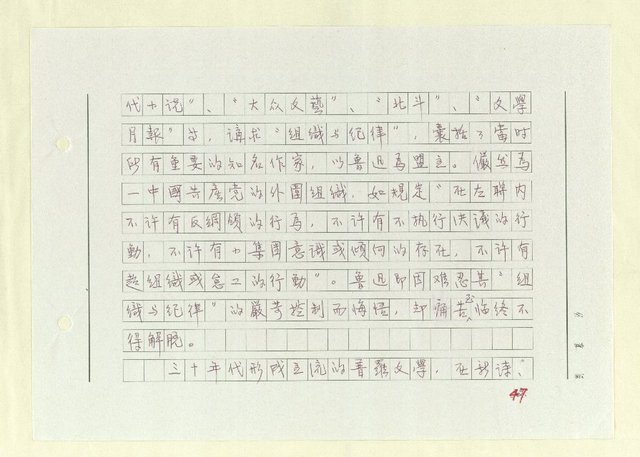 代小説"、"大众文藝"、"北斗"、"文學
月報"等,講求"組織与纪律",囊括了當时
所有重要的知名作家,以魯迅爲盟主。儼然爲
一中國共產党的外圍組織,如規定"在左聯内
不许有反綱領的行爲,不许有不执行决議的行
動,不许有小集团意識或倾向的存在,不许有
超組織或怠工的行動"。魯迅即因难忍其"組
織与纪律"的嚴苛控制而悔悟,却痛苦至临终不
得解脱。
三十年代形成主流的普羅文學,在
47